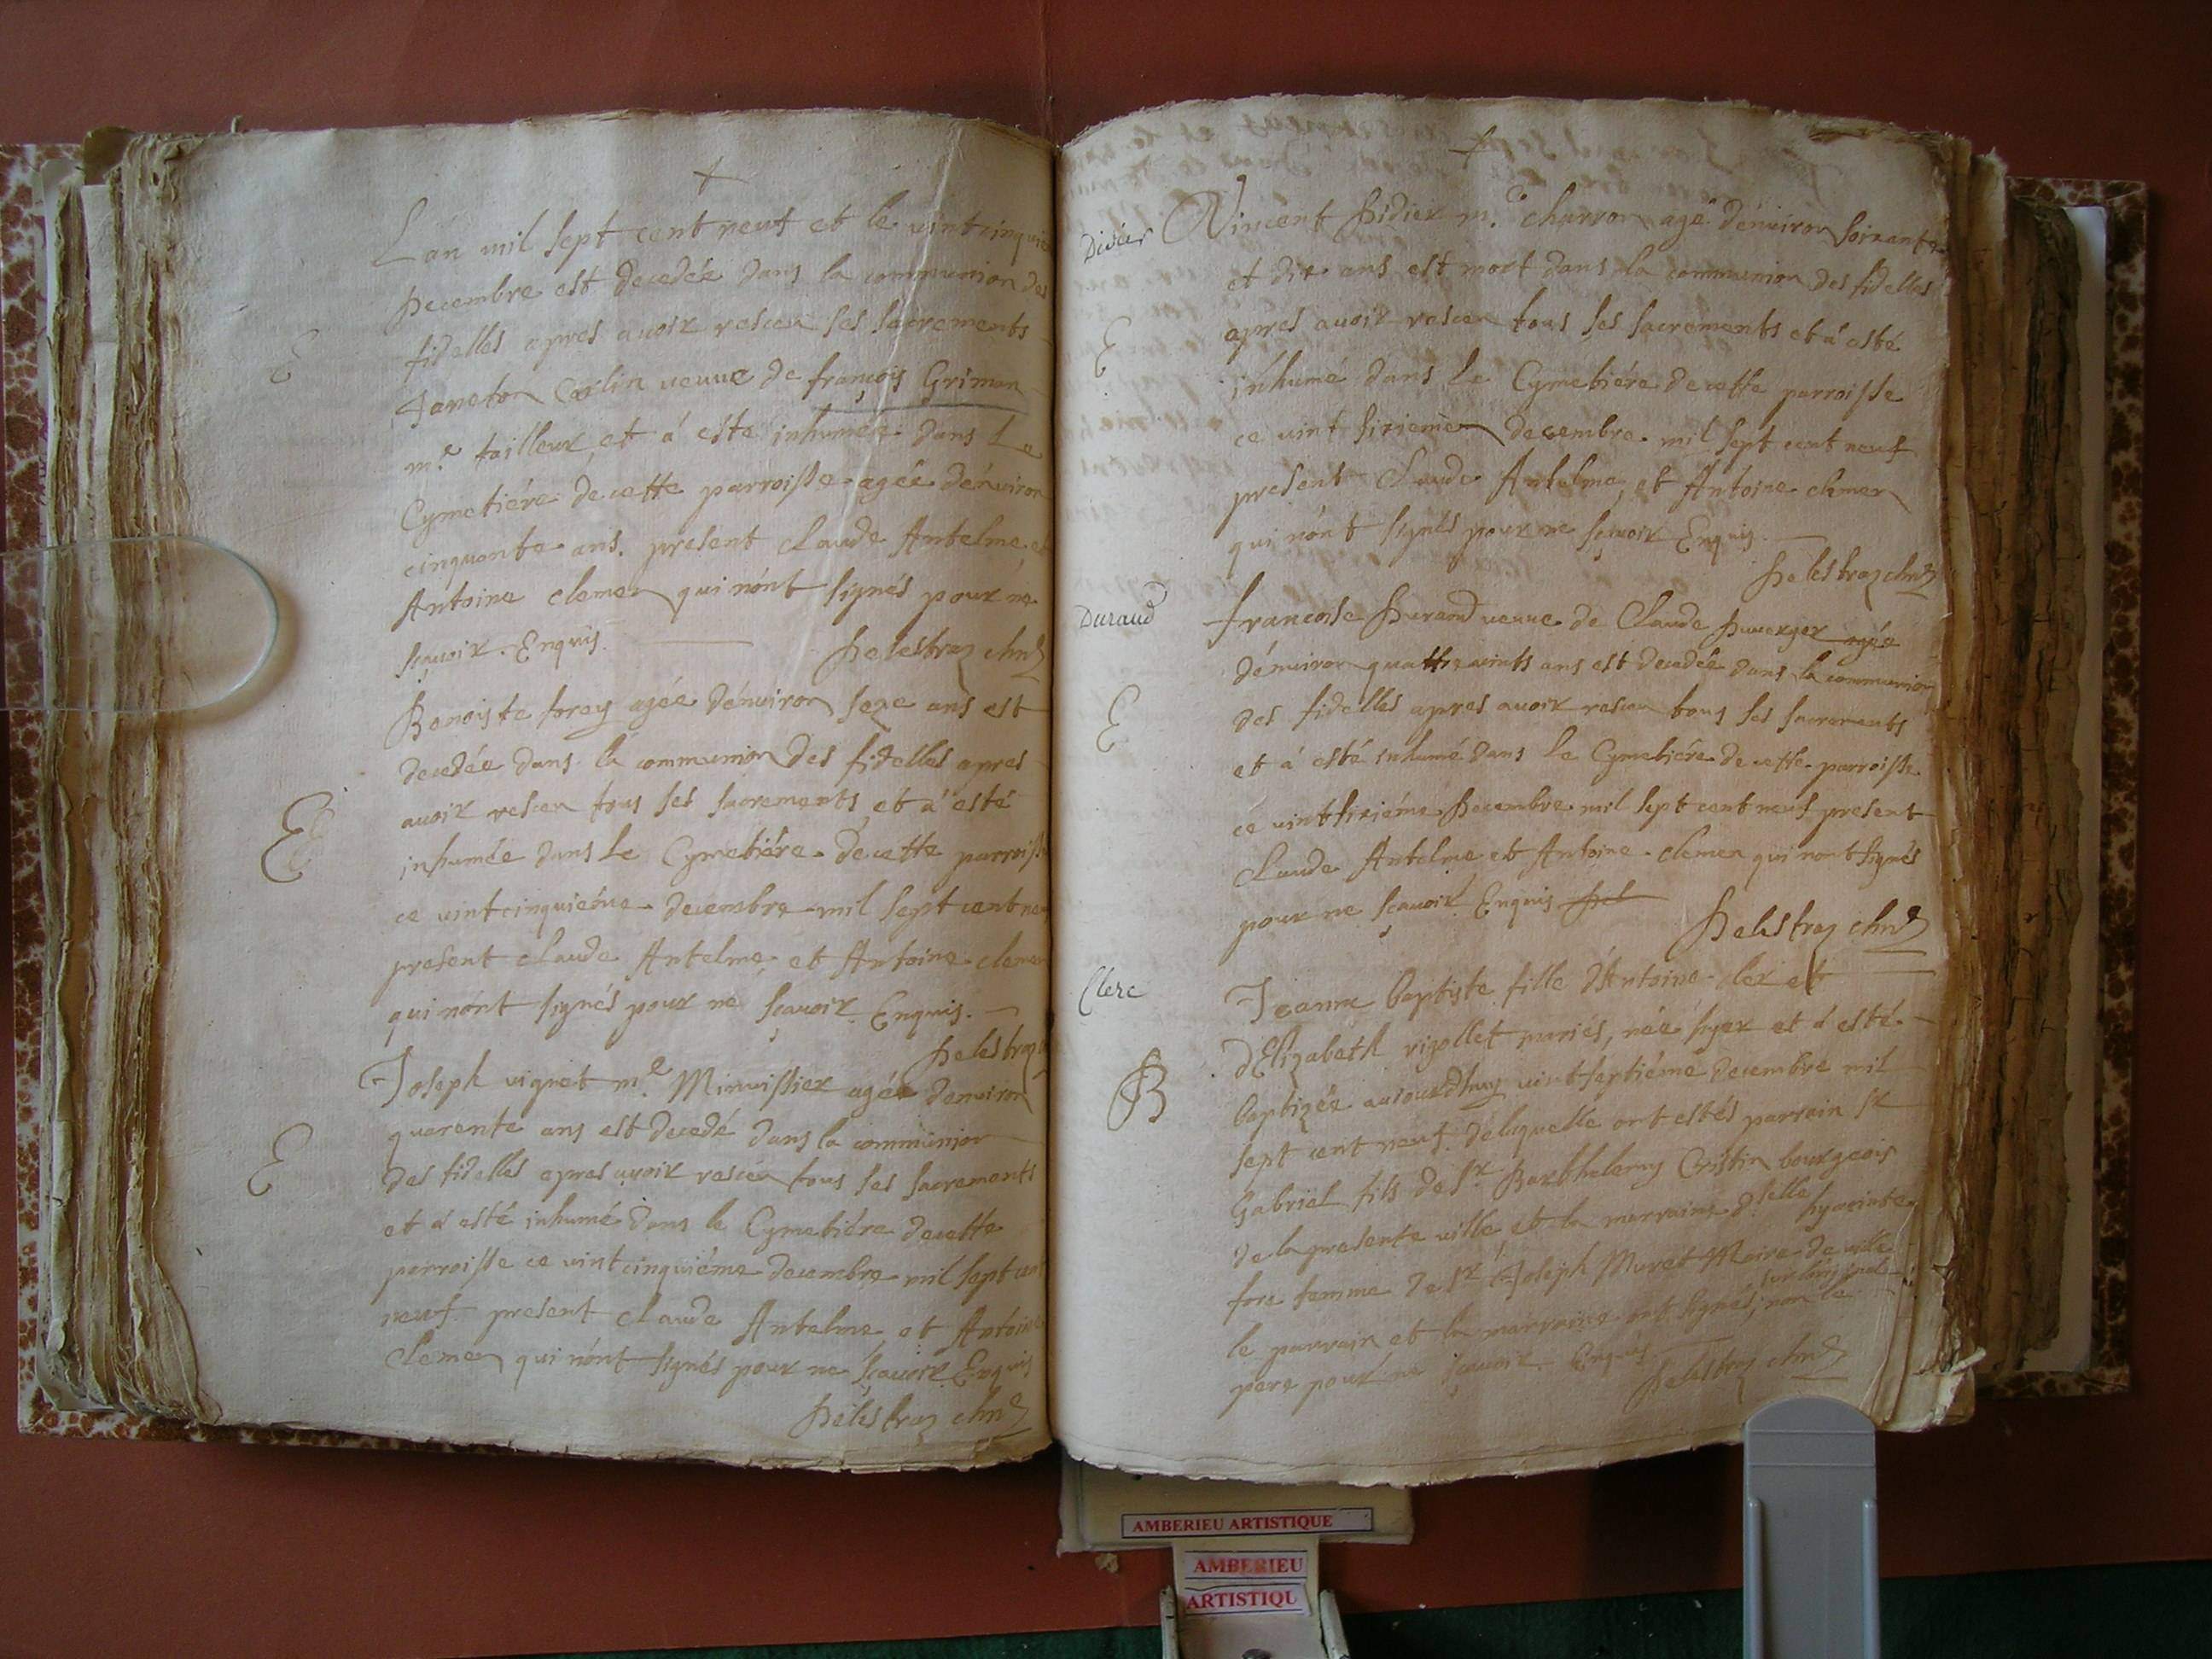 L'an mil sept cent neuf et le vintcinquie
Decembre est decedée dans la communion des
fidelles apres avoir resceu ses sacrements
Janeton Carlin veuve de françois Griman
m.e tailleur, et à esté inhumée dans Le
Cymetiére de cette parroisse agée dénviron
cinquante ans. present Claude Antelme, et
Antoine clemen qui nónt signés pour ne
sçavoir. Enquis.
Delestraz chn
E
Benoiste forey agée dénviron seze ans est
decedée dans la communion des fidelles apres
avoir resceu tous ses sacrements, et á esté
inhumée dans Le Cymetiére de cette parroisse
ce vintcinquiéme decembre mil sept cent neu
present claude Antelme, et Antoine clemen
qui nónt signés pour ne sçavoir. Enquis.
Delestraz
E
Joseph vignet m.e Minuissier agée denviron
quarente ans est decedé dans la communion
des fidelles apres avoir resceu tous ses sacrements
et á esté inhumé dans le Cymetiére de cette
parroisse ce vintcinquiéme decembre mil sept cent
neuf present claude Antelme et Antoine
Clemen qui nónt signés pour ne sçavoir. Enquis
Delestraz chn
E
Didier
Vincent Didier m.e charron agé dénviron soixante
et dix ans est mort dans la communion des fidelles
apres avoir resceu tous ses sacrements et á esté
inhumé dans Le Cymetiére de cette parroisse
ce vint sixieme decembre mil sept cent neuf
present Claude Antelme, et Antoine clemen
qui nónt signés pour ne sçavoir Enquis.
Delestraz chn
E
Durand
francoise Durand veuve de Claude Duverger agée
dénviron quattrevints ans est decedée dans la communion
des fidelles apres avoir resceu tous ses sacrements
et á esté inhumé dans le Cymetiére de cette parroisse
ce vintsixiéme Decembre mil sept cent neuf present
Claude Antelme et Antoine clemen qui nont signés
pour ne sçavoir Enquis Del
Delestraz chn
E
Clerc
Jeanne baptiste fille d'Antoine cler et
d'Elizabeth rigollet mariés, née hyer et á esté
baptizée aujourdhuy vintseptiéme decembre mil
sept cent neuf. de laquelle ont estés parrain sr
Gabriel fils de Sr. Barthelemy Cristin bourgeois
de la presente ville, et la marraine d.selle hyacinte
fore femme de Sr. Joseph Muret Maire de ville
le parrain et la marraine ont signés sur l'original, non le
pere pour ne sçavoir Enquis.
Delestraz chn
B
AMBERIEU ARTISTIQUE
AMBERIEU
ARTISTIQU